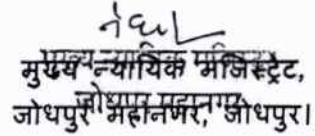 मुख्य न्यायिक मजिस्ट्रेट,
जोधपुर महानगर, जोधपुर।